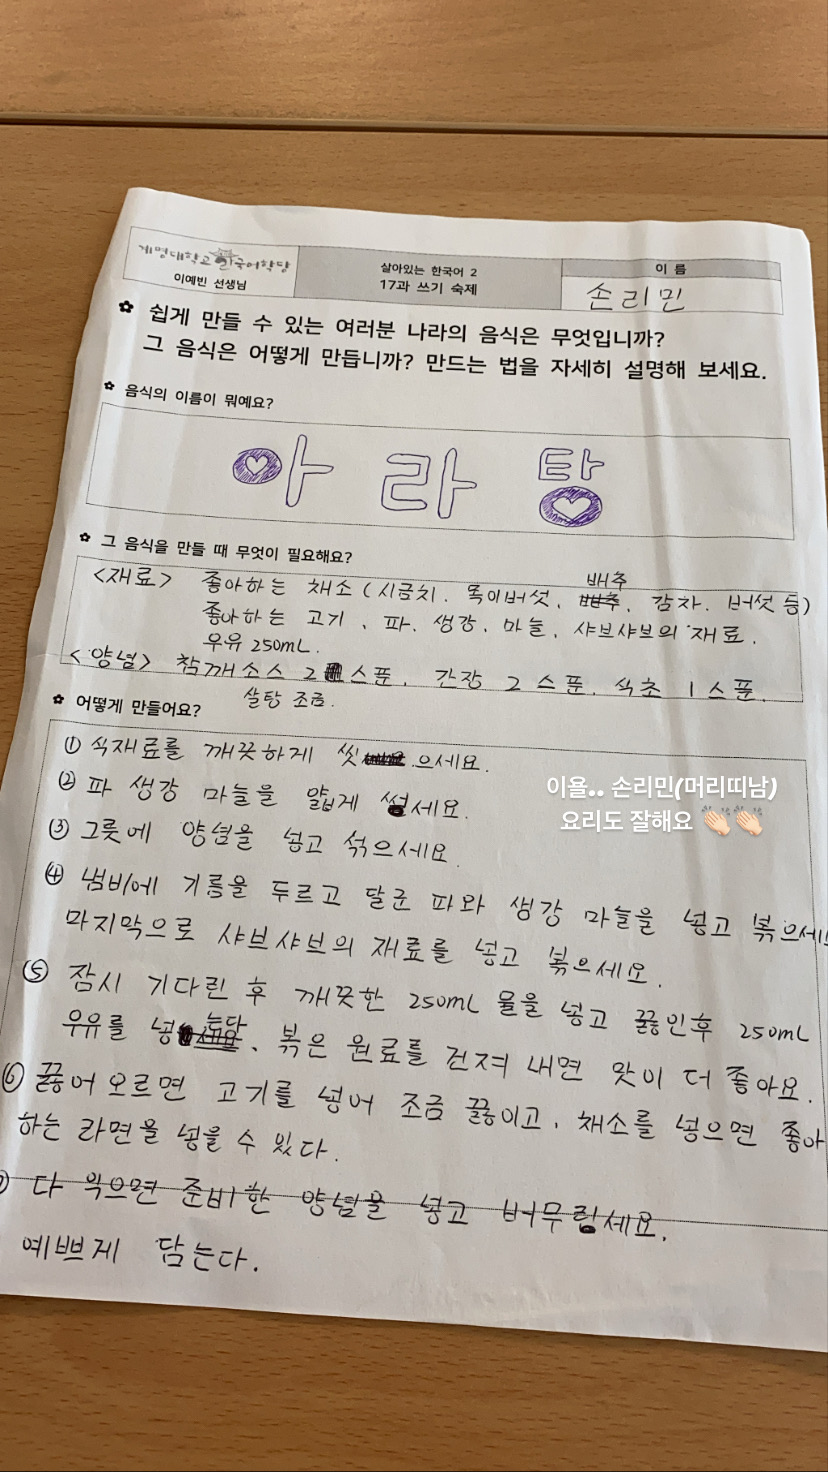 계명대학교 한국어학당
이예빈 선생님
살아있는 한국어 2
17과 쓰기 숙제
이 름
손리민
✿ 쉽게 만들 수 있는 여러분 나라의 음식은 무엇입니까?
그 음식은 어떻게 만듭니까? 만드는 법을 자세히 설명해 보세요.
✿ 음식의 이름이 뭐예요?
아 라 탕
✿ 그 음식을 만들 때 무엇이 필요해요?
<재료> 좋아하는 채소 (시금치. 목이버섯, 배추, 감자. 버섯 등)
좋아하는 고기, 파. 생강, 마늘, 샤브샤브의 재료.
우유 250mL.
<양념> 참깨소스 2스푼. 간장 2스푼. 식초 1스푼.
설탕 조금.
✿ 어떻게 만들어요?
① 식재료를 깨끗하게 씻으세요.
② 파 생강 마늘을 얇게 썰세요.
③ 그릇에 양념을 넣고 섞으세요.
이욜.. 손리민(머리띠남)
요리도 잘해요 👏🏻👏🏻
④ 냄비에 기름을 두르고 달군 파와 생강 마늘을 넣고 볶으세
마지막으로 샤브샤브의 재료를 넣고 볶으세요.
⑤ 잠시 기다린 후 깨끗한 250mL 물을 넣고 끓인후 250mL
우유를 넣는다. 볶은 원료를 건져 내면 맛이 더 좋아요.
⑥ 끓어오르면 고기를 넣어 조금 끓이고, 채소를 넣으면 좋아
하는 라면을 넣을 수 있다.
다 익으면 준비한 양념을 넣고 버무림세요.
예쁘게 담는다.